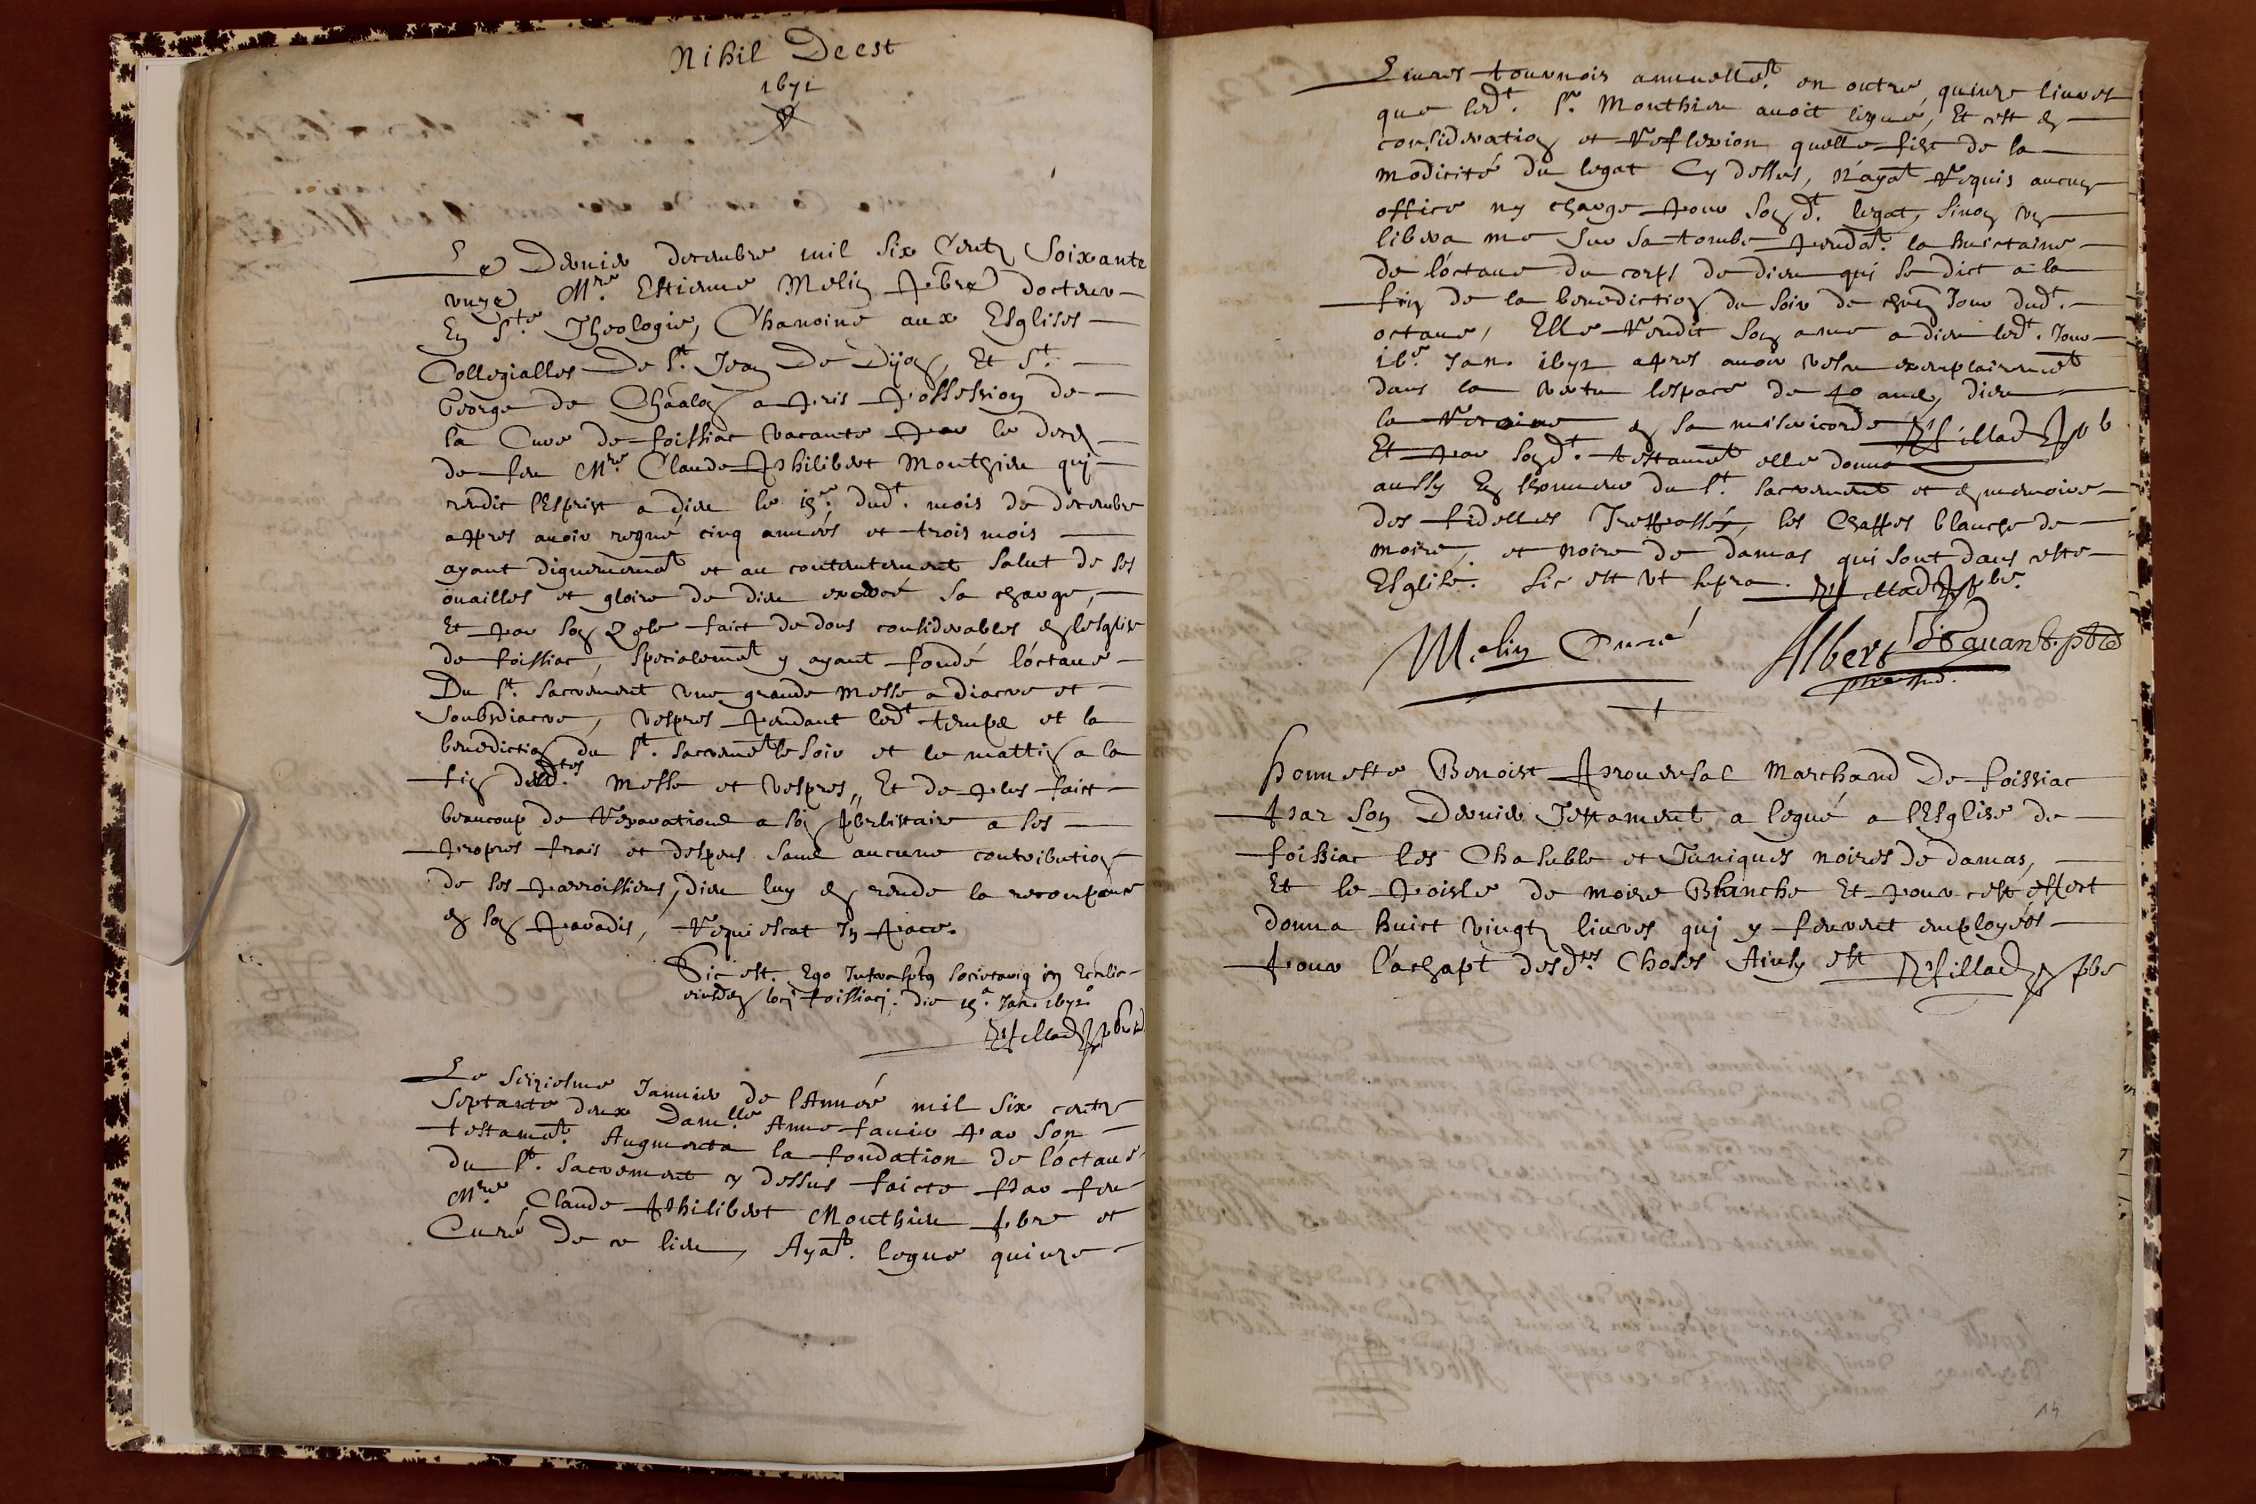 Nihil Deest
1671
Le Dernier decembre mil six Centz Soixante
unze Mre. Estienne Melin pbre docteur
En Ste Theologie, Chanoine aux Esglises
Collegialles De St. Jean De Dijon, Et St.
George de Chaalon a pris possession de
la Cure de foissiac vacante par le deces
de feu Mre. Claude Philibert Monthieu qui
rendit l'Esprist a Dieu le dud. mois de decembre
appres avoir regné cinq années et trois mois
ayant dignement et au contentement salut de ses
ouailles et gloire de Dieu exercé sa charge,
Et par son faict de dons considerables en lesglise
de foissiac, specialemt y ayant fondé l'octave
Du St. Sacrement une grande messe a diacre et
soubsdiacre, vespres pendant ledt temps et la
benediction du St. Sacremet le soir et le mattin a la
fin desdtes messe et vespres, Et de plus faict
beaucoup de reparations a son presbitaire a ses
propres frais et despens sans aucune contribution
de ses parroissiens, dieu luy en rende la recompense
en son paradis, Requiescat In pace.
Sic est. Ego societarius in Ecclie
eiusdem loci foissiaci. die Jan. 1672
Le seiziesme Janvier de l'Année mil six centz
septante deux Damlle Anne favier par son
testamet. Augmenta la fondation de l'octave
du St. Sacrement cy dessus faicte par feu
Mre. Claude Philibert Monthieu pbre et
Curé De ce lieu, Ayat. legue quinze
Livres tournois annuellet. en outre quinze livres
que ledt. Sr Monthieu avoit legué, Et cest en
consideration et Reflexion quelle fist de la
modicité du legat Cy dessus, n'ayat Requis aucun
office ny charge pour son dt. legat, sinon un
libera me sur sa tombe pendat. la huictaine
de l'octave du corps de dieu qui se dict a la
fin de la benediction du soir de chun Jour dudt.
octave, Elle Rendit son ame a dieu ledt. Jour
16e Jan. 1672 apres avoir vesu exemplairemet
dans la vertu lespace de 40 ans, dieu
la Recoive en sa misericorde
Et par sondt. testamet elle donna
aussy En l'honneur du St. sacrement et en memoire
des fidelles Trespassés, les Chappes blanche de
moire, et noire de damas qui sont dans cette
Esglise. Sic est ut supra.
Melin Curé Albert
honneste Benoist Prouensal Marchand De foissiac
par son Dernier Testament a legué a l'Esglise de
foissiac les Chasuble et Tuniques noires de damas,
Et le poisle de moire Blanche Et pour cest effect
donna huict vingtz livres qui y furent employées
pour l'achapt desdes Choses Ainsy est
14